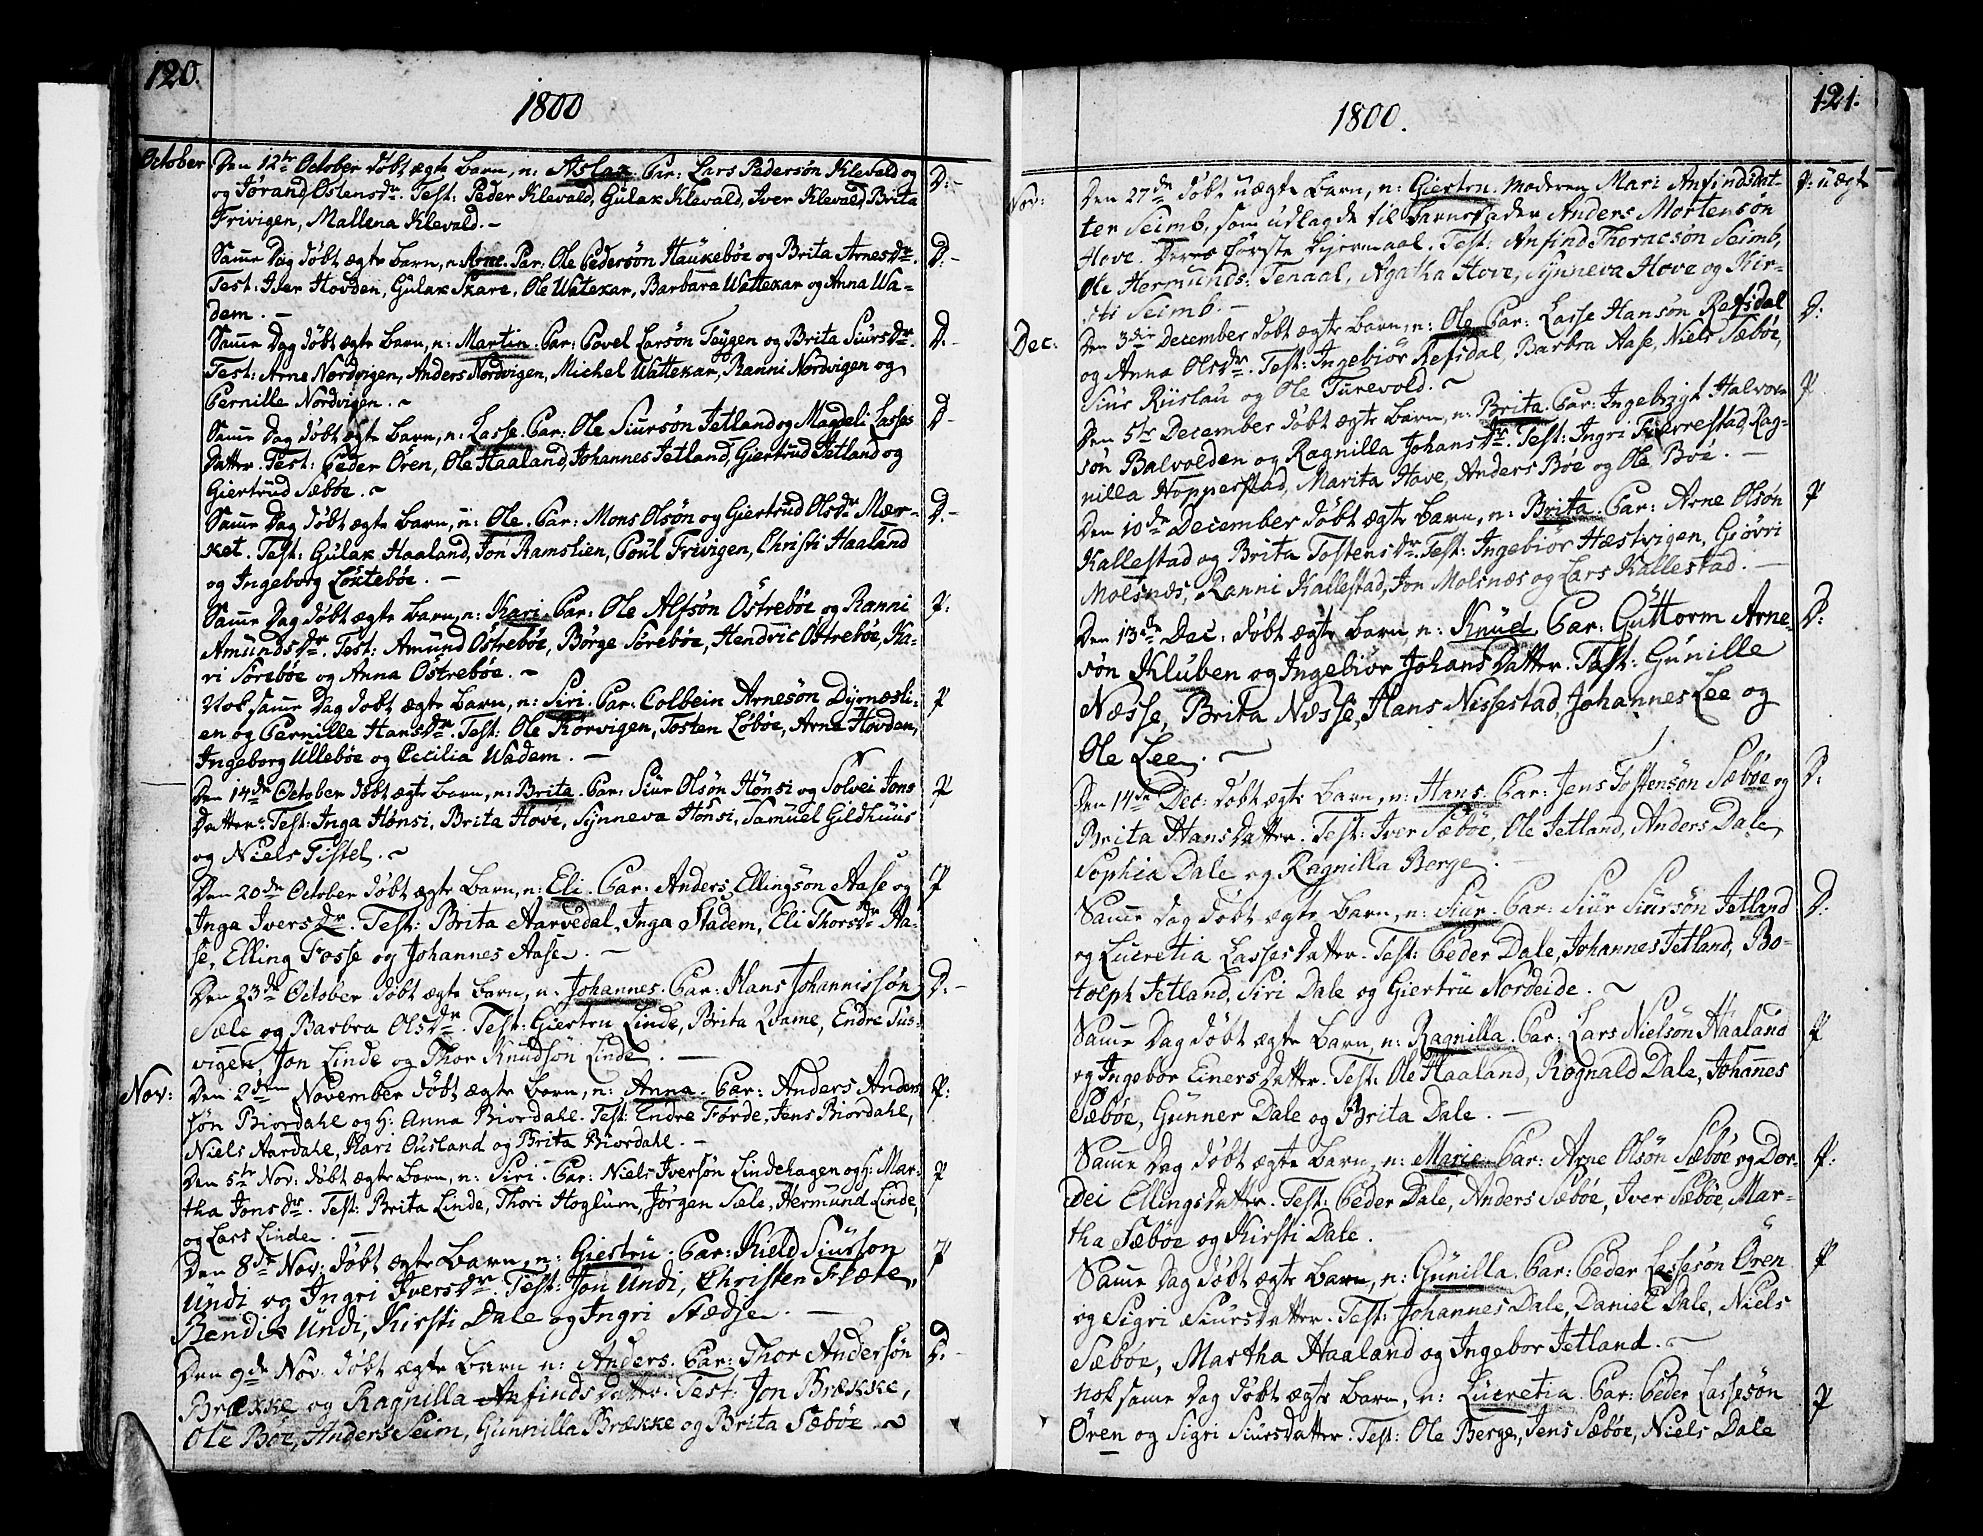 120.
1800
October
Den 12te October döbt ægte barn, n: Aslak. Par: Lars Pedersön Klevald og D:-
og Jörand Östensdr. Test: Peder Klevald, Gulak Klevald, Iver Klevald, Brita
Frivigen, Mallena Klevald. -
Samme Dag döbt ægte barn, n: Arne. Par: Ole Pedersön Haukeböe og Brita Arnesdr. D:-
Test: Iver Hovden, Gulak Skare, Ole Watekar, Barbara Wattekar og Anna Wa-
dem. -
Samme Dag döbt ægte barn, n: Martin. Par: Povel Larsön Töÿgen og Brita Siursdr. D.-
Test: Arne Nordvigen, Anders Nordvigen, Michel Wattekar, Ranni Nordvigen og
Pernille Nordvigen. ~
Samme Dag döbt ægte barn, n: Lasse. Par: Ole Siursön Jetland og Magdeli Lasses D-
Datter. Test: Peder Ören, Ole Haaland, Johannes Jetland, Giertrud Jetland og
Giertrud Sæböe. ~
Samme Dag döbt ægte barn, n: Ole. Par: Mons Olsön og Giertrud Olsdr Mær- D.-
ket. Test: Gulak Haaland, Jon Ramslien, Poul Frivigen, Christi Haaland
og Ingeborg Lökteböe. -
Samme Dag döbt ægte barn, n: Kari. Par: Ole Alfsön Östreböe og Ranni P:
Amundsdr. Test: Amund Östreböe, Börge Söreböe, Hendric Östreböe, Ka-
ri Söreböe og Anna Östreböe. ~
Nok samme Dag döbt ægte barn, n: Siri. Par: Colbein Arnesön Dÿrnesli- P
en og Pernille Hansdr. Test: Ole Körvigen, Tosten Löböe, Arne Hovden,
Ingeborg Ulleböe og Cecilia Wadem. -
Den 14de October döbt ægte barn, n: Brita. Par: Siur Olsön Hönsi og Solvei Jons P
Datter. Test: Inga Hönsi, Brita Hove, Synneva Hönsi, Samuel Gildhuus
og Niels Tistel. ~
Den 20de October döbt ægte barn, n: Eli. Par: Anders Ellingsön Aase og P
Inga Iversdr. Test: Brita Aarvedal, Inga Stadem, Eli Thorsdr Aa-
se, Elling Fosse og Johannes Aase. -
Den 23de October döbt ægte barn, n: Johannes. Par: Hans Johannissön D:-
Sæle og Barbra Olsdr. Test: Giertru Linde, Brita Qvame, Endre Tus-
vigen, Jon Linde og Thor Knudsön Linde. -
Nov:
Den 2den November döbt ægte barn, n: Anna. Par: Anders Anders P:
sön Biordahl og H: Anna Biordahl. Test: Endre Förde, Jens Biordahl,
Niels Aardahl, Kari Ousland og Brita Biordahl. -
Den 5te Nov: döbt ægte barn, n: Siri. Par: Niels Iversön Lindehagen og H: Mar- P
tha Jonsdr. Test: Brita Linde, Thori Hoglum, Jorgen Sæle, Hermund Linde,
og Lars Linde. -
Den 8de Nov: döbt ægte barn, n: Giertru. Par: Kield Siursson P
Undi og Ingri Iversdr. Test: Jon Undi, Christen Flæte,
Bendix Undi, Kirsti Dale og Ingri Stædje. -
Den 9de Nov. döbt ægte barn n: Anders. Par: Thor Andersön D.-
Brække og Ragnilla Anfindsdatter. Test: Jon Brække,
Ole Böe, Anders Seim, Gunnilla Brække og Brita Sæböe. ~
121.
1800.
Nov:
Den 27de döbt uægte barn, n: Giertru. Moderen Mari Anfindsdat- P: uægte
ter Seimb, som udlagde til barnefader Anders Mortenson
Hove. Deres förste Leiermaal. Test: Anfind Thoracsön Seimb,
Ole Hermunds: Tenaal, Agatha Hove, Synneva Hove og Kir-
sti Seimb. -
Dec:
Den 3die December döbt ægte barn, n: Ole. Par: Lasse Hansön Refsdal D:
og Anna Olsdr. Test: Ingebiör Refsdal, Barbra Aase, Niels Sæböe,
Siur Riislau og Ole Turevold. ~
Den 5te December döbt ægte barn, n: Brita. Par: Ingebrigt Halvor P
sön Balvolden og Ragnilla Johansdr. Test: Ingri Fierrestad, Rag-
nilla Hopperstad, Marita Hove, Anders Böe og Ole Böe. -
Den 10de December döbt ægte barn, n: Brita. Par: Arne Olsön P
Kallestad og Brita Tostensdr. Test: Ingebiör Hæstvigen, Giövri
Molsnæs, Ranni Kallestad, Jon Molsnæs og Lars Kallestad. -
Den 13de Dec: döbt ægte barn, n: Knud. Par: Guttorm Arne- D:
sön Kluben og Ingebiör Johansdatter. Test: Gunille
Næsse, Brita Næsse, Hans Nissestad, Johannes Lee og
Ole Lee. ~
Den 14de Dec: döbt ægte barn, n: Hans. Par: Jens Tostensön Sæböe og D:
Brita Hansdatter. Test: Iver Sæböe, Ole Jetland, Anders Dale,
Sophia Dale og Ragnilla Berge. -
Samme Dag döbt ægte barn, n: Siur. Par: Siur Siursön Jetland D:
og Lucretia Lassesdatter. Test: Peder Dale, Johannes Jetland, Bo-
tolph Jetland, Siri Dale og Giertru Nordeide. ~
Samme Dag döbt ægte barn, n: Ragnilla. Par: Lars Nielsön Haaland P
og Ingebor Einersdatter. Test: Ole Haaland, Rognald Dale, Johannes
Sæböe, Gunner Dale og Brita Dale. -
Samme Dag döbt ægte barn, n: Marie. Par: Arne Olsön Sæböe og Dor- P:
dei Ellingsdatter. Test: Peder Dale, Anders Sæböe, Iver Sæböe, Mar-
tha Sæböe og Kirsti Dale.
Samme Dag döbt ægte barn, n: Gunilla. Par: Peder Lassesön Ören P
og Sigri Siursdatter. Test: Johannes Dale, Daniel Dale, Niels
Sæböe, Martha Haaland og Ingebor Jetland. ~
Nok samme Dag döbt ægte barn, n: Lucretia. Par: Peder Lassesön P
Ören og Sigri Siursdatter. Test: Ole Berge, Jens Sæböe, Niels Dale